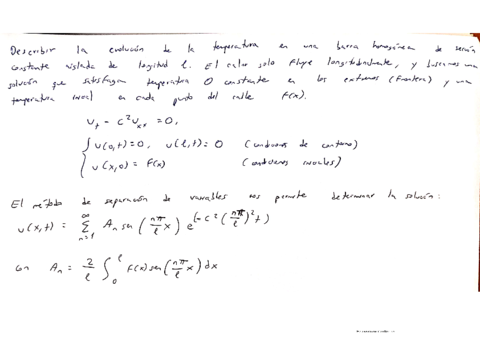 Describir la evolución de la temperatura en una barra homogénea de sección
constante aislada de longitud l. El calor solo fluye longitudinalmente, y buscamos una
solución que satisfagan temperatura 0 constante en los extremos (frontera) y una
temperatura inicial en cada punto del cable F(x).
u_t - c²u_xx = 0,
{ u(0,t) = 0, u(l,t) = 0 (condiciones de contorno)
u(x,0) = F(x) (condiciones iniciales)
El método de separación de variables nos permite determinar la solución:
u(x,t) = ∑_{n=1}^{∞} A_n sen(nπ/l x) e^(-c²(nπ/l)²t)
con A_n = 2/l ∫_0^l F(x) sen(nπ/l x) dx